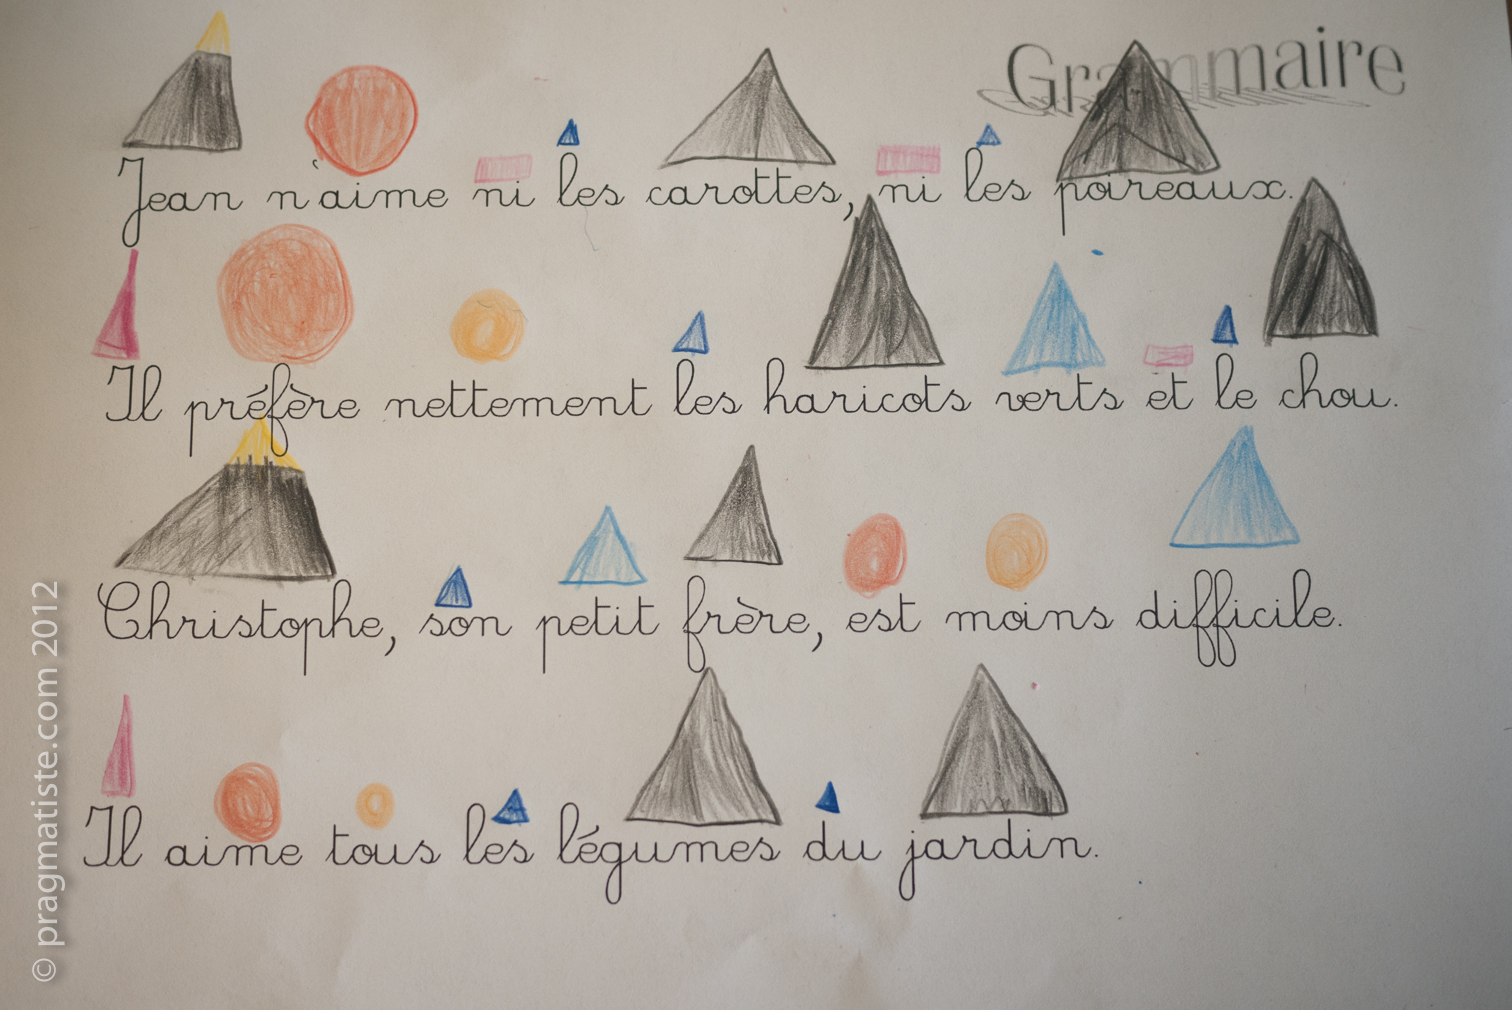 Grammaire
Jean n'aime ni les carottes, ni les poireaux.
Il préfère nettement les haricots verts et le chou.
Christophe, son petit frère, est moins difficile.
Il aime tous les légumes du jardin.
© pragmatiste.com 2012